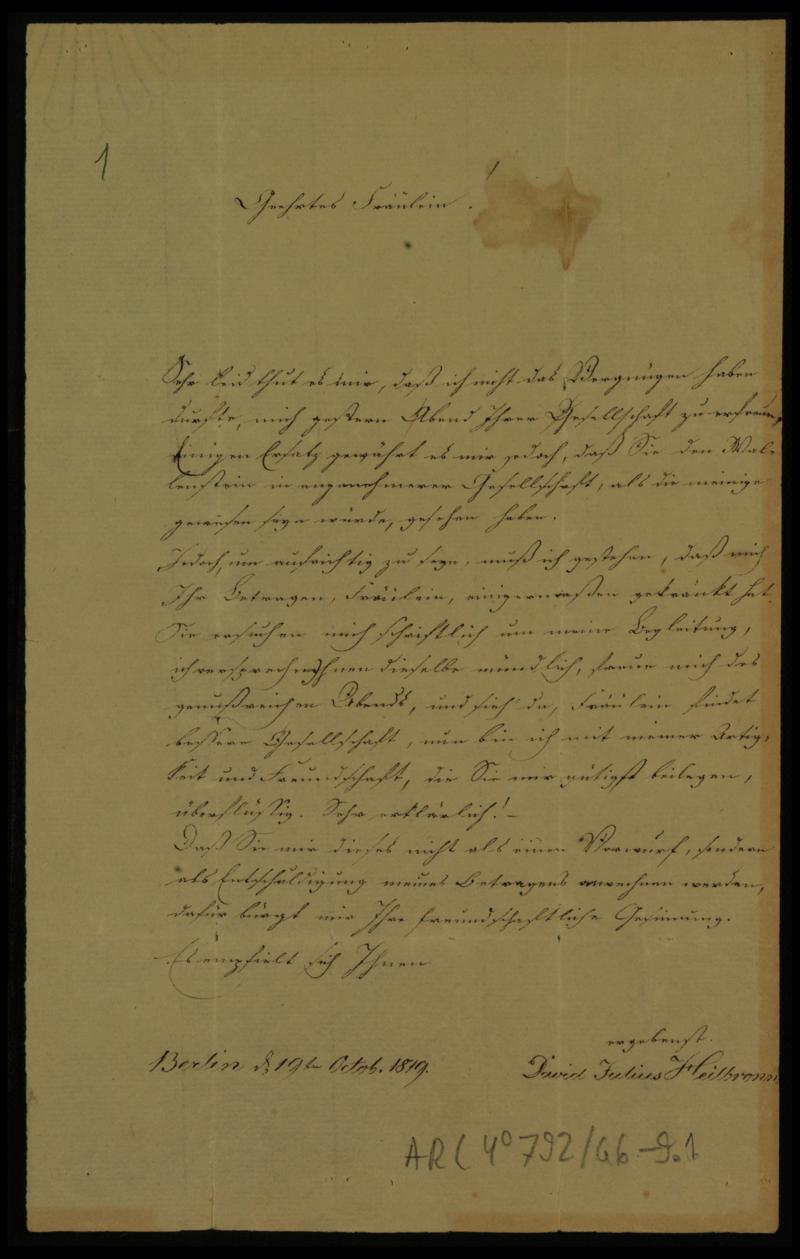 1
Geehrtes Fräulein!
Sehr leid thut es mir, daß ich nicht das Vergnügen haben
durfte, mich gestern Abend Ihrer Gesellschaft zu erfreun,
Einigen Ersatz gewährt es mir jedoch, daß Sie den Wal-
lenstein in angenehmerer Gesellschaft, als die meinige
gewesen seyn würde, gesehen haben.
Jedoch, um aufrichtig zu seyn, muß ich gestehen, daß mich
Ihr Betragen, Fräulein, einigermaßen gekränkt hat.
Sie ersuchen mich schriftlich um meine Begleitung,
ich verspreche Ihnen dieselbe mündlich, freue mich des
genußreichen Abends, und sieh da, Fräulein findet
bessere Gesellschaft, nun bin ich mit meiner Artig-
keit und Freundschaft, die Sie mir gütigst beilegen,
überflüssig. Sehr erklärlich! –
Daß Sie mir dieses nicht als einen Vorwurf, sondern
als Entschuldigung meines Betragens anrechnen werden,
dafür bürgt mir Ihre freundschaftliche Gesinnung.
Es empfielt sich Ihnen
ergebenst.
Berlin d 19te Octob. 1819.
David Julius Heilbronn
AR C 4° 792/66-9.1